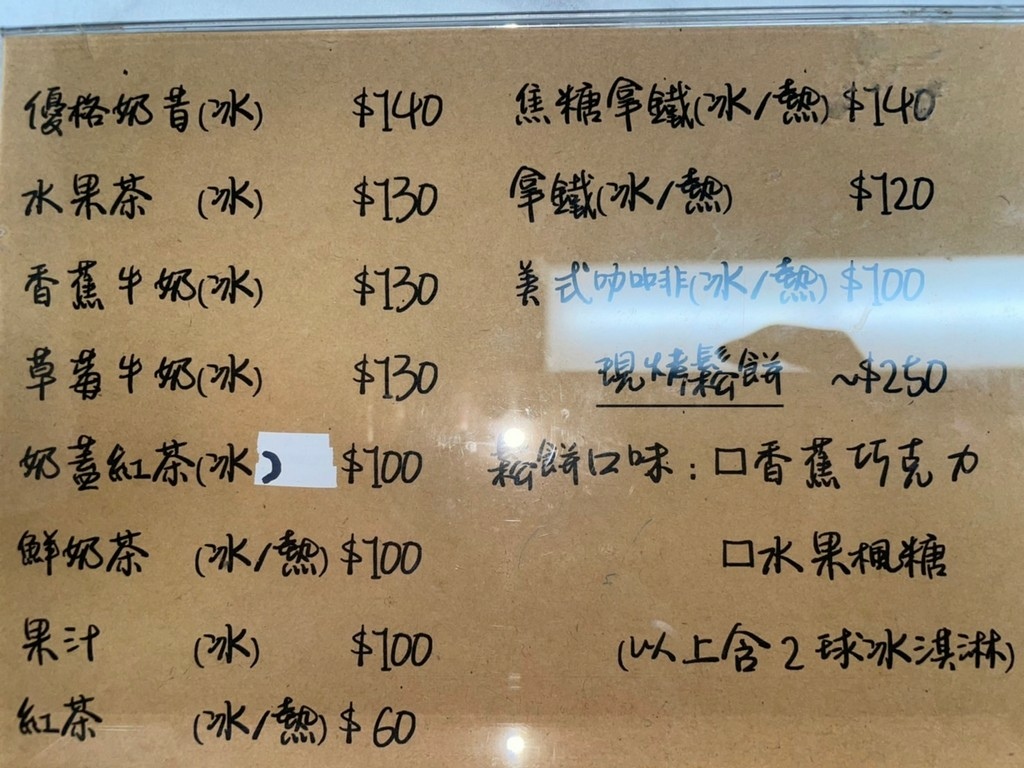 優格奶昔(冰) $140
水果茶 (冰) $130
香蕉牛奶(冰) $130
草莓牛奶(冰) $130
奶蓋紅茶(冰) $100
鮮奶茶 (冰/熱) $100
果汁 (冰) $100
紅茶 (冰/熱) $60
焦糖拿鐵(冰/熱) $140
拿鐵(冰/熱) $120
美式咖啡(冰/熱) $100
現烤鬆餅 ~$250
鬆餅口味：□香蕉巧克力
□水果楓糖
(以上含2球冰淇淋)